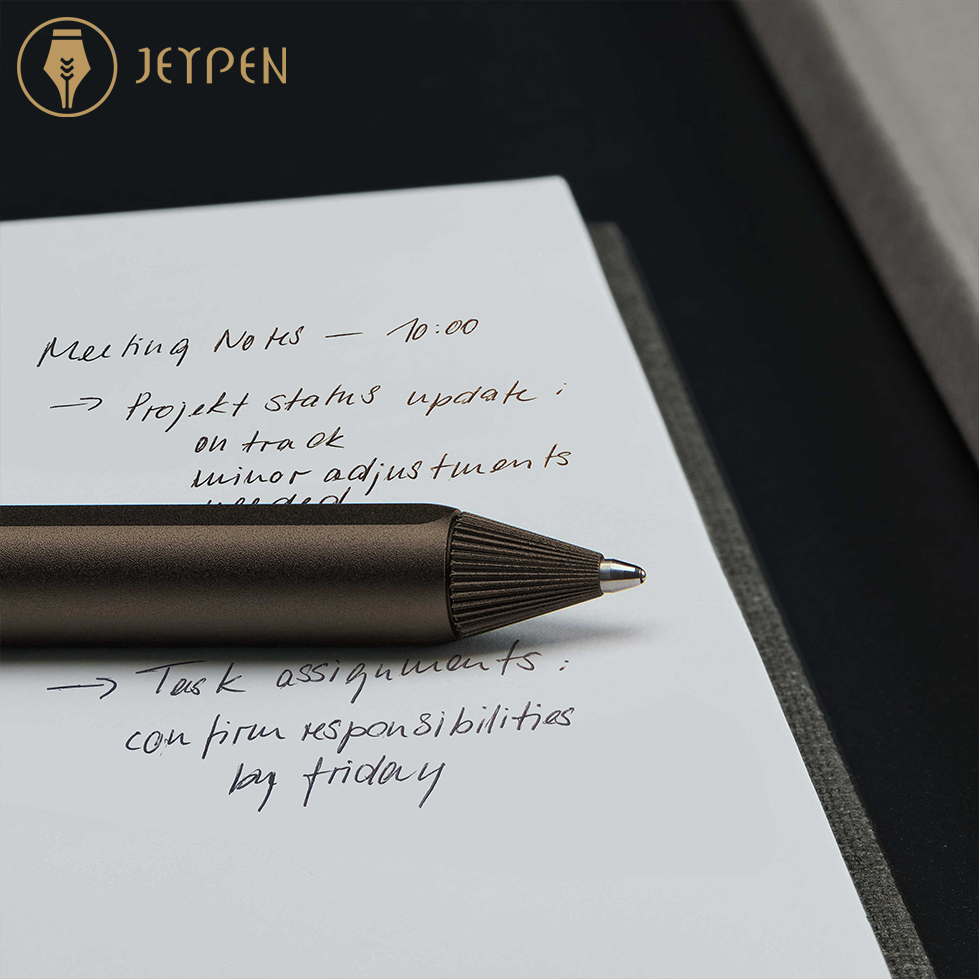 JEYPEN
Meeting Notes — 10:00
→ Projekt status update :
on track
minor adjustments
needed
→ Task assignments :
confirm responsibilities
by friday